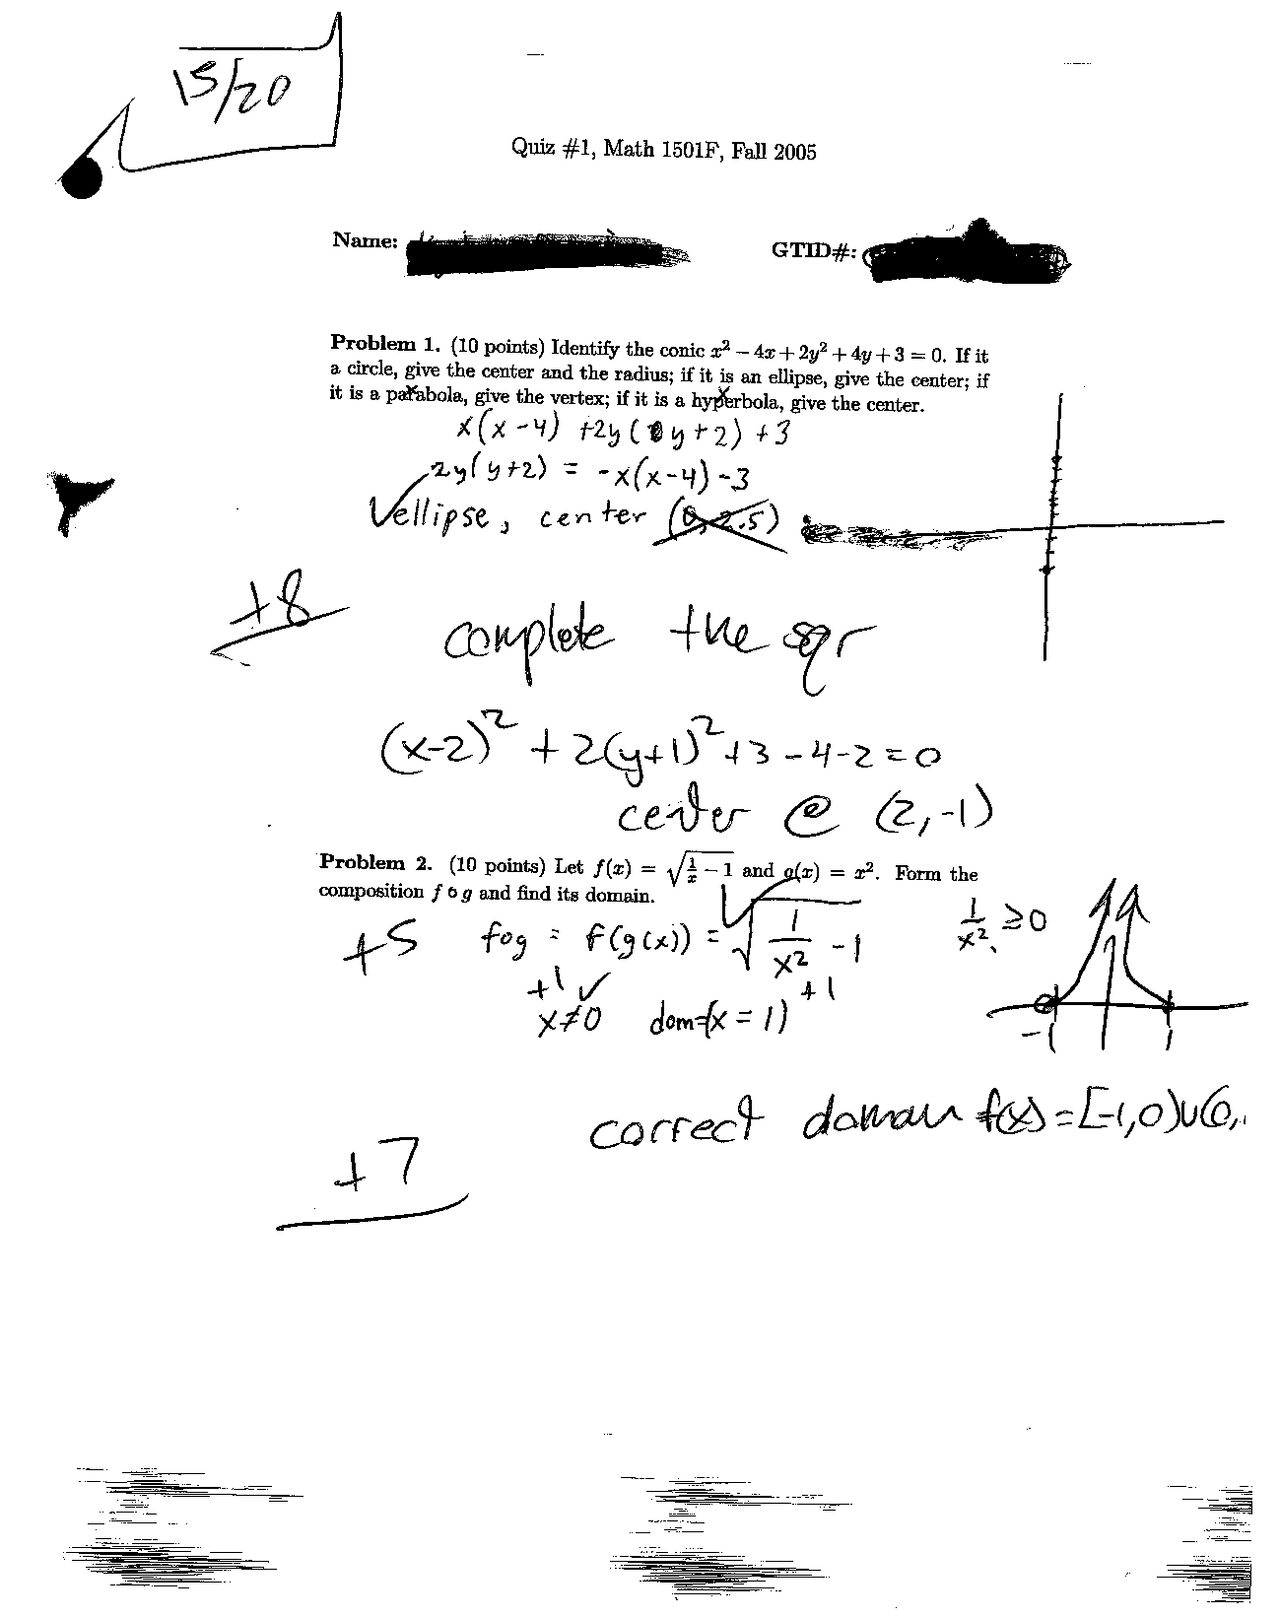 15/20
Quiz #1, Math 1501F, Fall 2005
Name:
GTID#:
Problem 1. (10 points) Identify the conic x² − 4x + 2y² + 4y + 3 = 0. If it
a circle, give the center and the radius; if it is an ellipse, give the center; if
it is a parabola, give the vertex; if it is a hyperbola, give the center.
x(x-4) +2y(y+2) +3
2y(y+2) = -x(x-4)-3
ellipse, center (0,-2.5)
+8
complete the sqr
(x-2)² + 2(y+1)² +3-4-2=0
center @ (2,-1)
Problem 2. (10 points) Let f(x) = √(1/x − 1) and g(x) = x². Form the
composition f ∘ g and find its domain.
+5 fog = f(g(x)) = √(1/x² - 1) 1/x² ≥0
+1 +1
x≠0 dom=(x = 1)
-1 1
correct domain f(x)=[-1,0)∪(0,
+7